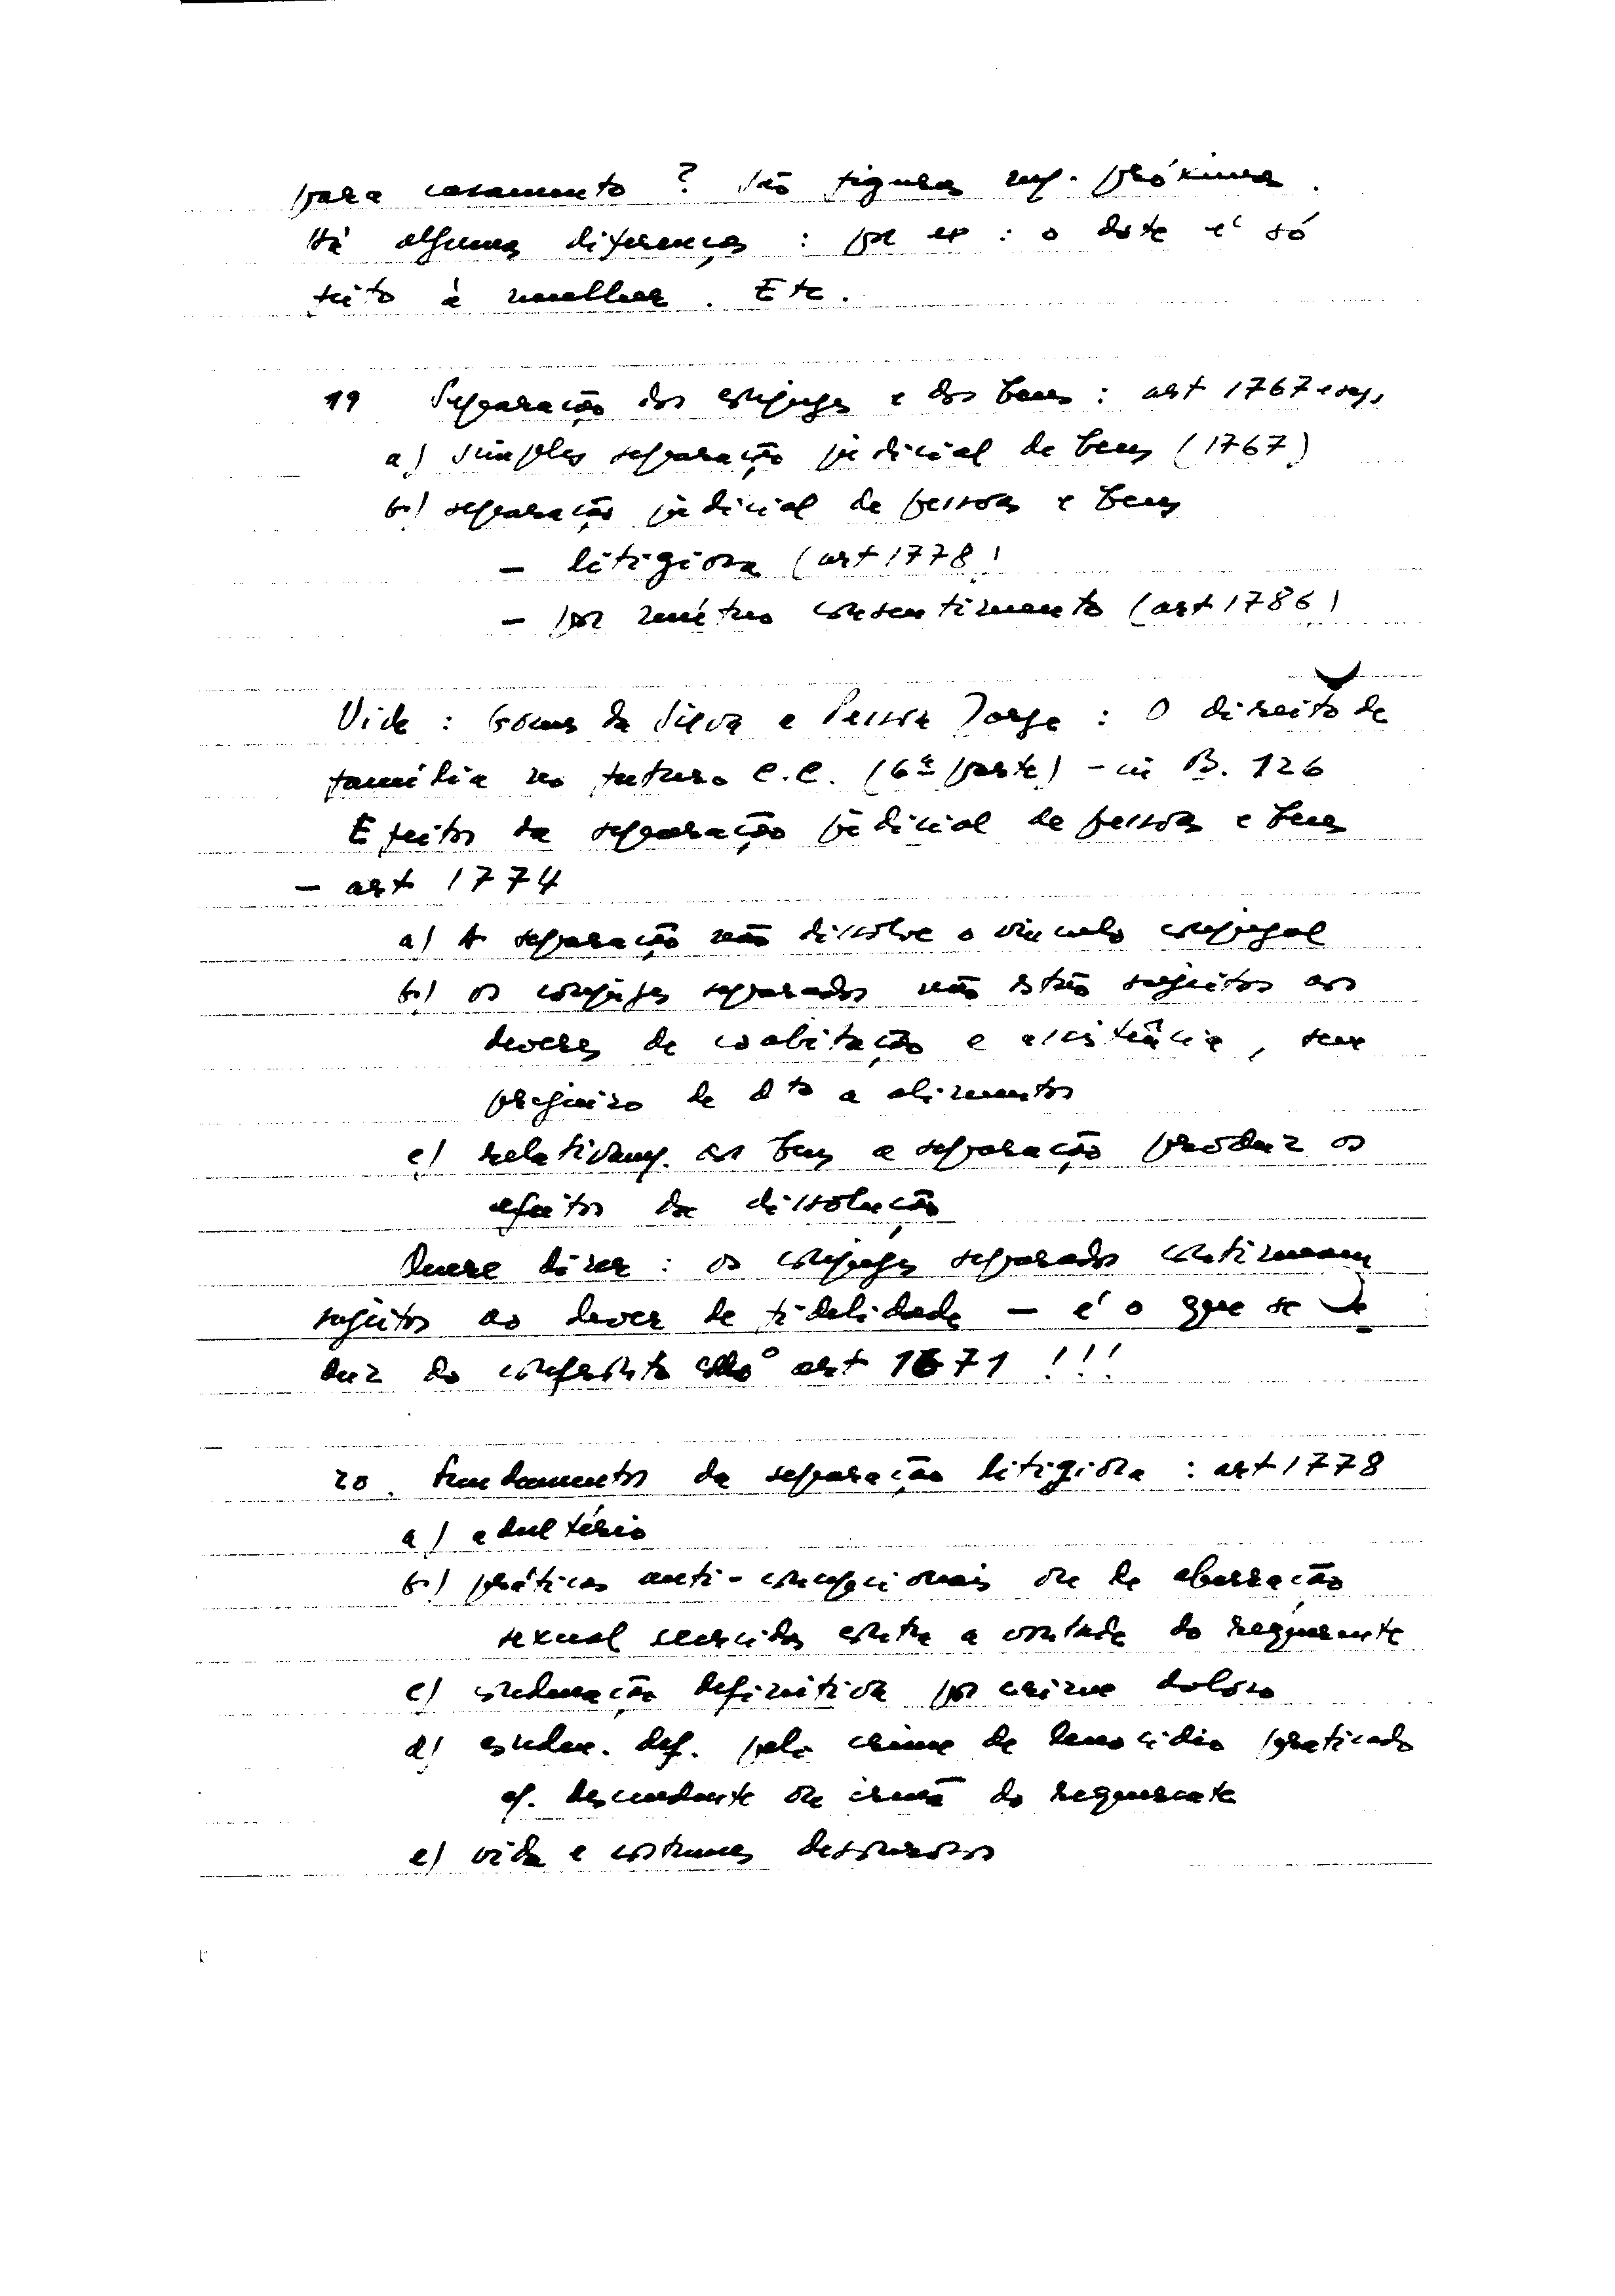 para casamento ? São figuras mº. próximas .
Há algumas diferenças : por ex : o dote é só
feito à mulher . Etc .
19 Separação dos cônjuges e dos bens : art 1767 e seg.
a) simples separação judicial de bens (1767)
b) separação judicial de pessoas e bens
- litigiosa (art 1778)
- por mútuo consentimento (art 1786)
Vide : Gomes da Silva e Pessoa Jorge : O direito de
família no futuro C.C. (6ª parte) - in B. 126
Efeitos da separação judicial de pessoas e bens
- art 1774
a) A separação não dissolve o vínculo conjugal
b) os cônjuges separados não estão sujeitos aos
deveres de coabitação e assistência , sem
prejuízo de dto a alimentos
c) relativamº. aos bens a separação produz os
efeitos da dissolução
Quere dizer : os cônjuges separados continuam
sujeitos ao dever de fidelidade - é o que se de
duz do confronto art 1671 !!!
20 . Fundamentos da separação litigiosa : art 1778
a) adultério
b) práticas anti-concepcionais ou de aberração
sexual exercidas contra a vontade do requerente
c) condenação definitiva por crime doloso
d) conden. def. pelo crime de lenocídio praticado
c/. descendente ou irmã do requerente
e) vida e costumes desonrosos